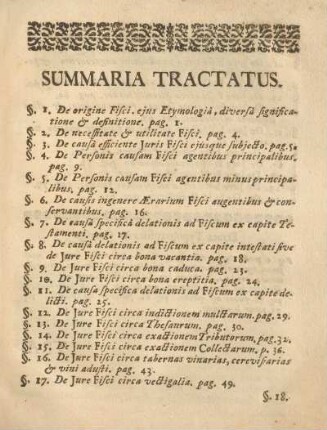 SUMMARIA TRACTATUS.
§. 1. De origine Fisci, ejus Etymologiâ, diversâ significa-
tione & definitione, pag. 1.
§. 2. De necessitate & utilitate Fisci, pag. 4.
§. 3. De causâ efficiente Juris Fisci ejusque subjecto. pag. 5.
§. 4. De Personis causam Fisci agentibus principalibus,
pag. 9.
§. 5. De Personis causam Fisci agentibus minus principa-
libus, pag. 12.
§. 6. De causis in genere Ærarium Fisci augentibus & con-
servantibus, pag. 16.
§. 7. De causâ specificâ delationis ad Fiscum ex capite Te-
stamenti, pag. 17.
§. 8. De causâ delationis ad Fiscum ex capite intestati sive
de Jure Fisci circa bona vacantia. pag. 18.
§. 9. De Jure Fisci circa bona caduca. pag. 23.
§. 10. De Jure Fisci circa bona ereptitia. pag. 24.
§. 11. De causa specifica delationis ad Fiscum ex capite de-
licti. pag. 25.
§. 12. De Jure Fisci circa indictionem multarum. pag. 29.
§. 13. De Jure Fisci circa Thesaurum. pag. 30.
§. 14. De Jure Fisci circa exactionem Tributorum, pag. 32.
§. 15. De Jure Fisci circa exactionem Collectarum. p. 36.
§. 16. De Jure Fisci circa tabernas vinarias, cerevisiarias
& vini adusti. pag. 43.
§. 17. De Jure Fisci circa vectigalia. pag. 49.
§. 18.